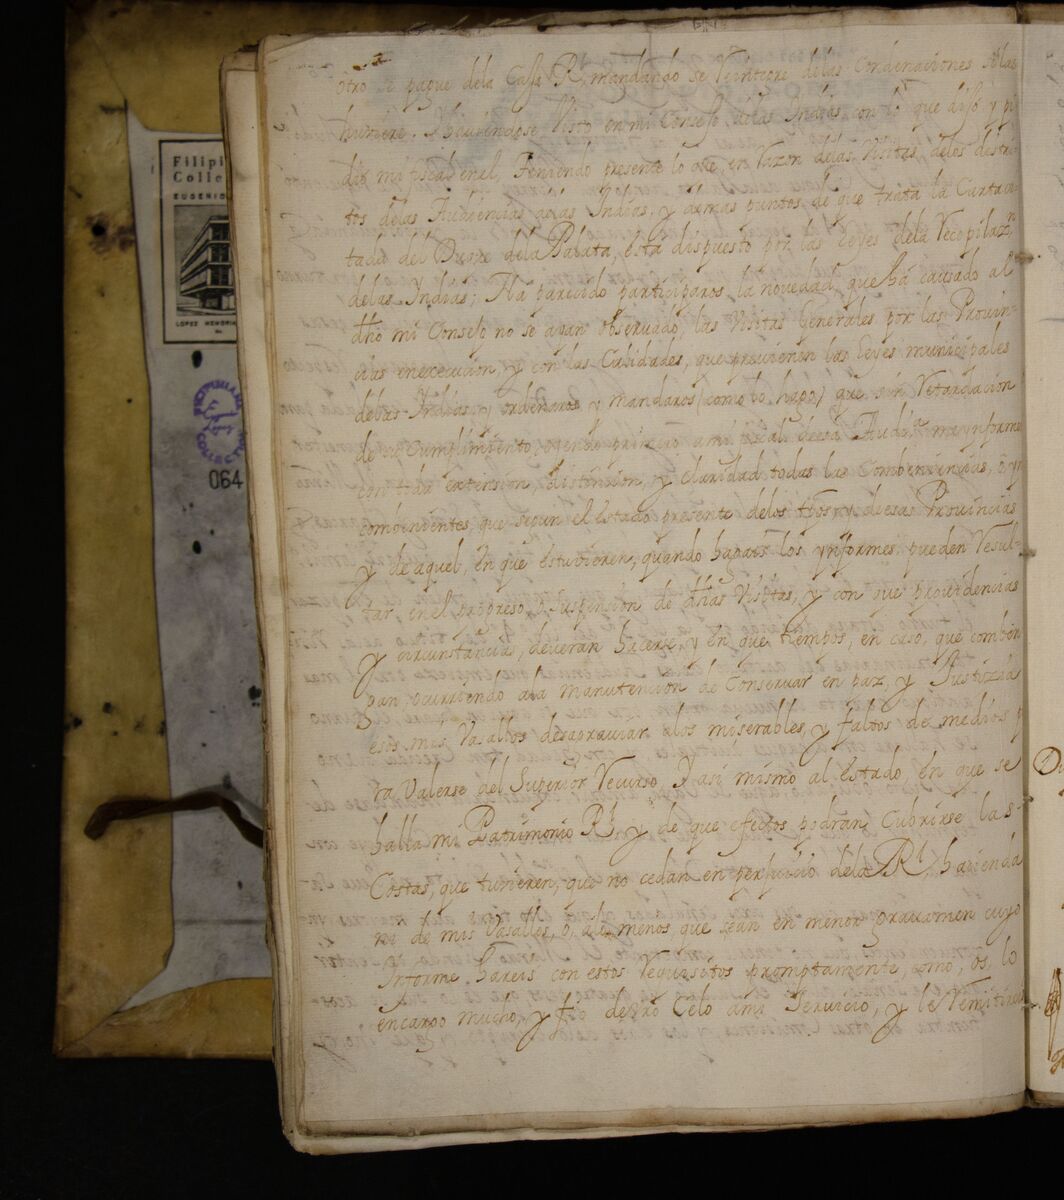 otro se pague dela Casa Rl mandando se Reintegre delas Condenaciones que las
huuiere. Y hauiendose Visto en mi Consejo delas Indias con lo que dijo y pi
dio mi fiscal en el, Teniendo presente lo que, en Razon delas Visitas, delos destri-
tos delas Audiencias delas Indias, y demas puntos de que trata la Carta ci-
tada del Duque dela Palata, esta dispuesto por las Leyes dela Recopilazn
delas Indias; Ha parecido participaros la novedad, que ha causado al
dho mi Consejo no se ayan observado, las Visitas Generales por las Prouin-
cias en execucion, y con las Calidades, que preuienen las Leyes municipales
de las Indias, y ordenaros y mandaros (como lo hago) que sin Retardacion
de su Cumplimiento, oyendo primero a mi fiscal de esa Auda me ynforme
con toda extension, distincion, y claridad todas las Combeniencias, ô, yn
combinientes, que segun el estado presente delos tpos y de esas Prouincias
y de aquel, en que estuvieren, quando hagais los ynformes pueden Resul-
tar, en el progreso, ô Suspension de dhas Visitas, y con que prouidencias
y circunstancias, deveran hacerse, y en que tiempos, en caso, que comben
gan, ocurriendo a la manutencion de Conservar en paz, y Justizia
esos mis Vasallos desagrauiar alos miserables, y faltos de medios p
ra Valerse del Superior Recurso. Y asi mismo al Estado, en que se
halla mi Patrimonio Rl, y de que efectos podran Cubrirse las
Costas, que tuvieren, que no cedan en perjuicio dela Rl hazienda
ni de mis Vasallos, ô, alo menos, que sean en menor Grauamen cuyo
Informe hareis con estos Requisitos promptamente, como, os, lo
encargo mucho, y fio de vro Celo a mi Servicio, y le Remitireis
Filipi
Colle
EUGENIO
LOPEZ MEMORIA
064